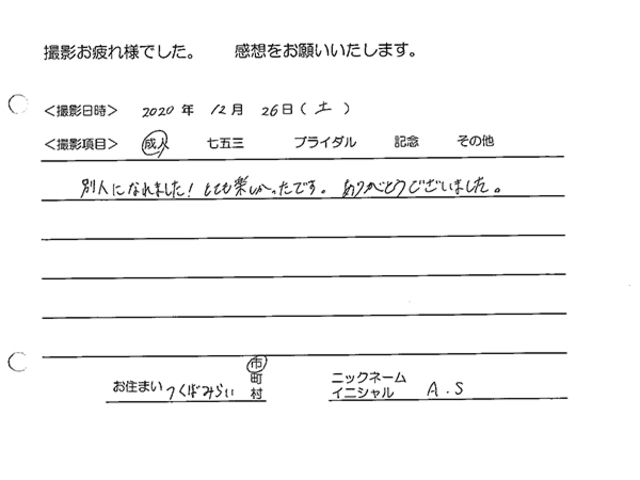 撮影お疲れ様でした。 感想をお願いいたします。
＜撮影日時＞ 2020 年 12 月 26 日 ( 土 )
＜撮影項目＞ 成人 七五三 ブライダル 記念 その他
別人になれました! とても楽しかったです。 ありがとうございました。
お住まい つくばみらい 市 町 村
ニックネーム イニシャル A.S